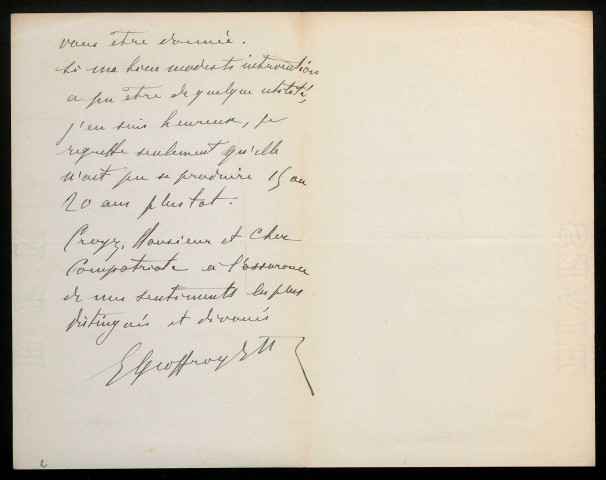 vous être donnée.
Si ma bien modeste intervention
a pu être de quelque utilité,
j'en suis heureux, je
regrette seulement qu'elle
n'ait pu se produire 15 ou
20 ans plus tot.
Croyez, Monsieur et Cher
Compatriote a l'assurance
de mes sentiments les plus
distingués et dévoués
EGeoffroy
2